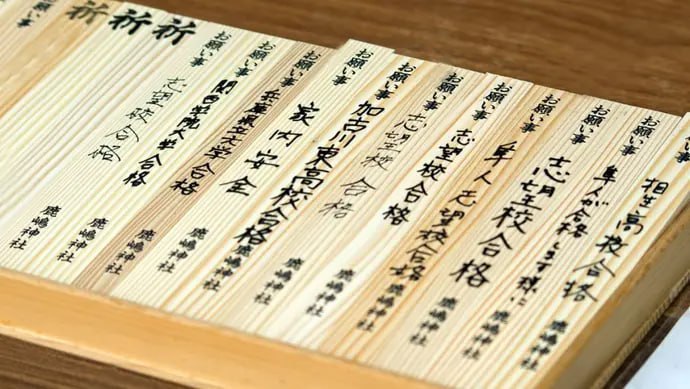 お願い事 相生高校合格
お願い事 隼人が合格します様に 鹿嶋神社
お願い事 志望校合格 鹿嶋神社
お願い事 隼人志望校合格 鹿嶋神社
お願い事 志望校合格 鹿嶋神社
お願い事 志望校合格 鹿嶋神社
お願い事 加古川東高校合格 鹿嶋神社
お願い事 家内安全 鹿嶋神社
お願い事 兵庫県立大学合格 鹿嶋神社
お願い事 関西学院大学合格 鹿嶋神社
お願い事 志望校合格 鹿嶋神社
祈
祈
祈